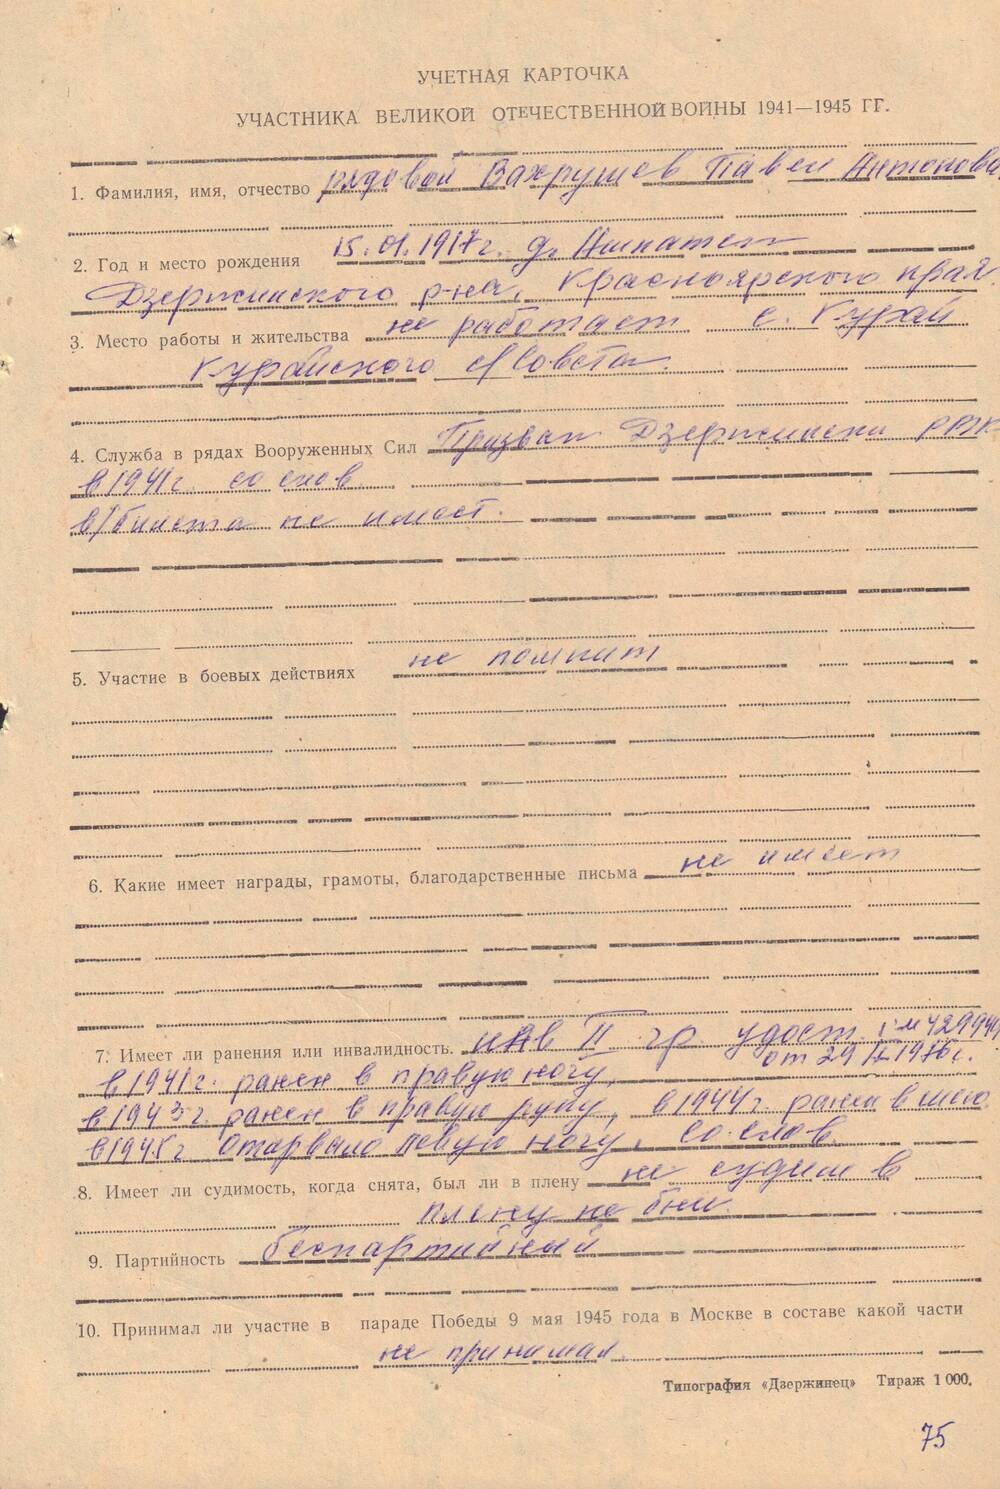 УЧЕТНАЯ КАРТОЧКА
УЧАСТНИКА ВЕЛИКОЙ ОТЕЧЕСТВЕННОЙ ВОЙНЫ 1941—1945 ГГ.
1. Фамилия, имя, отчество рядовой Вахрушев Павел Антонови
2. Год и место рождения 15.01.1917г. д.
Дзержинского р-на, Красноярского края.
3. Место работы и жительства не работает с. Курай
Курайского с/Совета.
4. Служба в рядах Вооруженных Сил Призван Дзержински РВК
в 1941г. со слов.
в/билета не имеет.
5. Участие в боевых действиях не помнит
6. Какие имеет награды, грамоты, благодарственные письма не имеет
7. Имеет ли ранения или инвалидность. инв II гр. удост.
в 1941г. ранен в правую ногу,
в 1943г. ранен в правую руку, в 1944г. ранен в шею
в 1945г оторвало левую ногу, со слов.
8. Имеет ли судимость, когда снята, был ли в плену не судим в
плену не был.
9. Партийность беспартийный
10. Принимал ли участие в параде Победы 9 мая 1945 года в Москве в составе какой части
не принимал.
Типография «Дзержинец» Тираж 1 000.
75